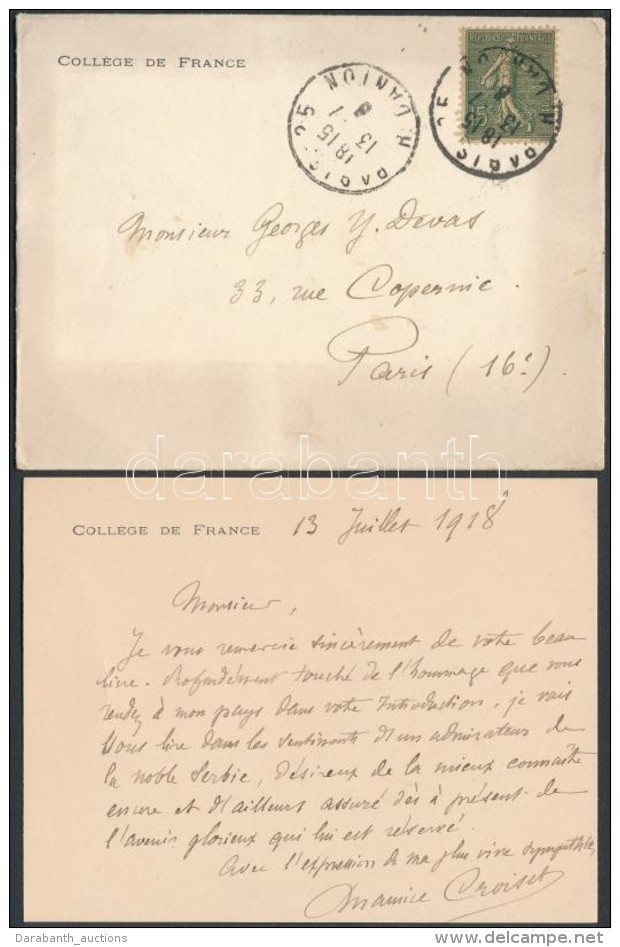 COLLÈGE DE FRANCE
REPUBLIQUE FRANÇAISE
15
PARIS 25
R. DANTON
18 15
13 7
PARIS 25
R. DANTON
18 15
13 7
Monsieur Georges Y. Devas
33, rue Copernic.
Paris (16e).
darabanth
COLLÈGE DE FRANCE
13 Juillet 1918
Monsieur,
Je vous remercie sincèrement de votre beau
livre. Profondément touché de l'hommage que vous
rendez à mon pays dans votre Introduction, je vais
vous lire dans les sentiments d'un admirateur de
la noble Serbie, désireux de la mieux connaître
encore et d'ailleurs assuré dès à présent de
l'avenir glorieux qui lui est réservé.
Avec l'expression de ma plus vive sympathie,
Maurice Croiset
Darabanth_auctions
www.delcampe.net